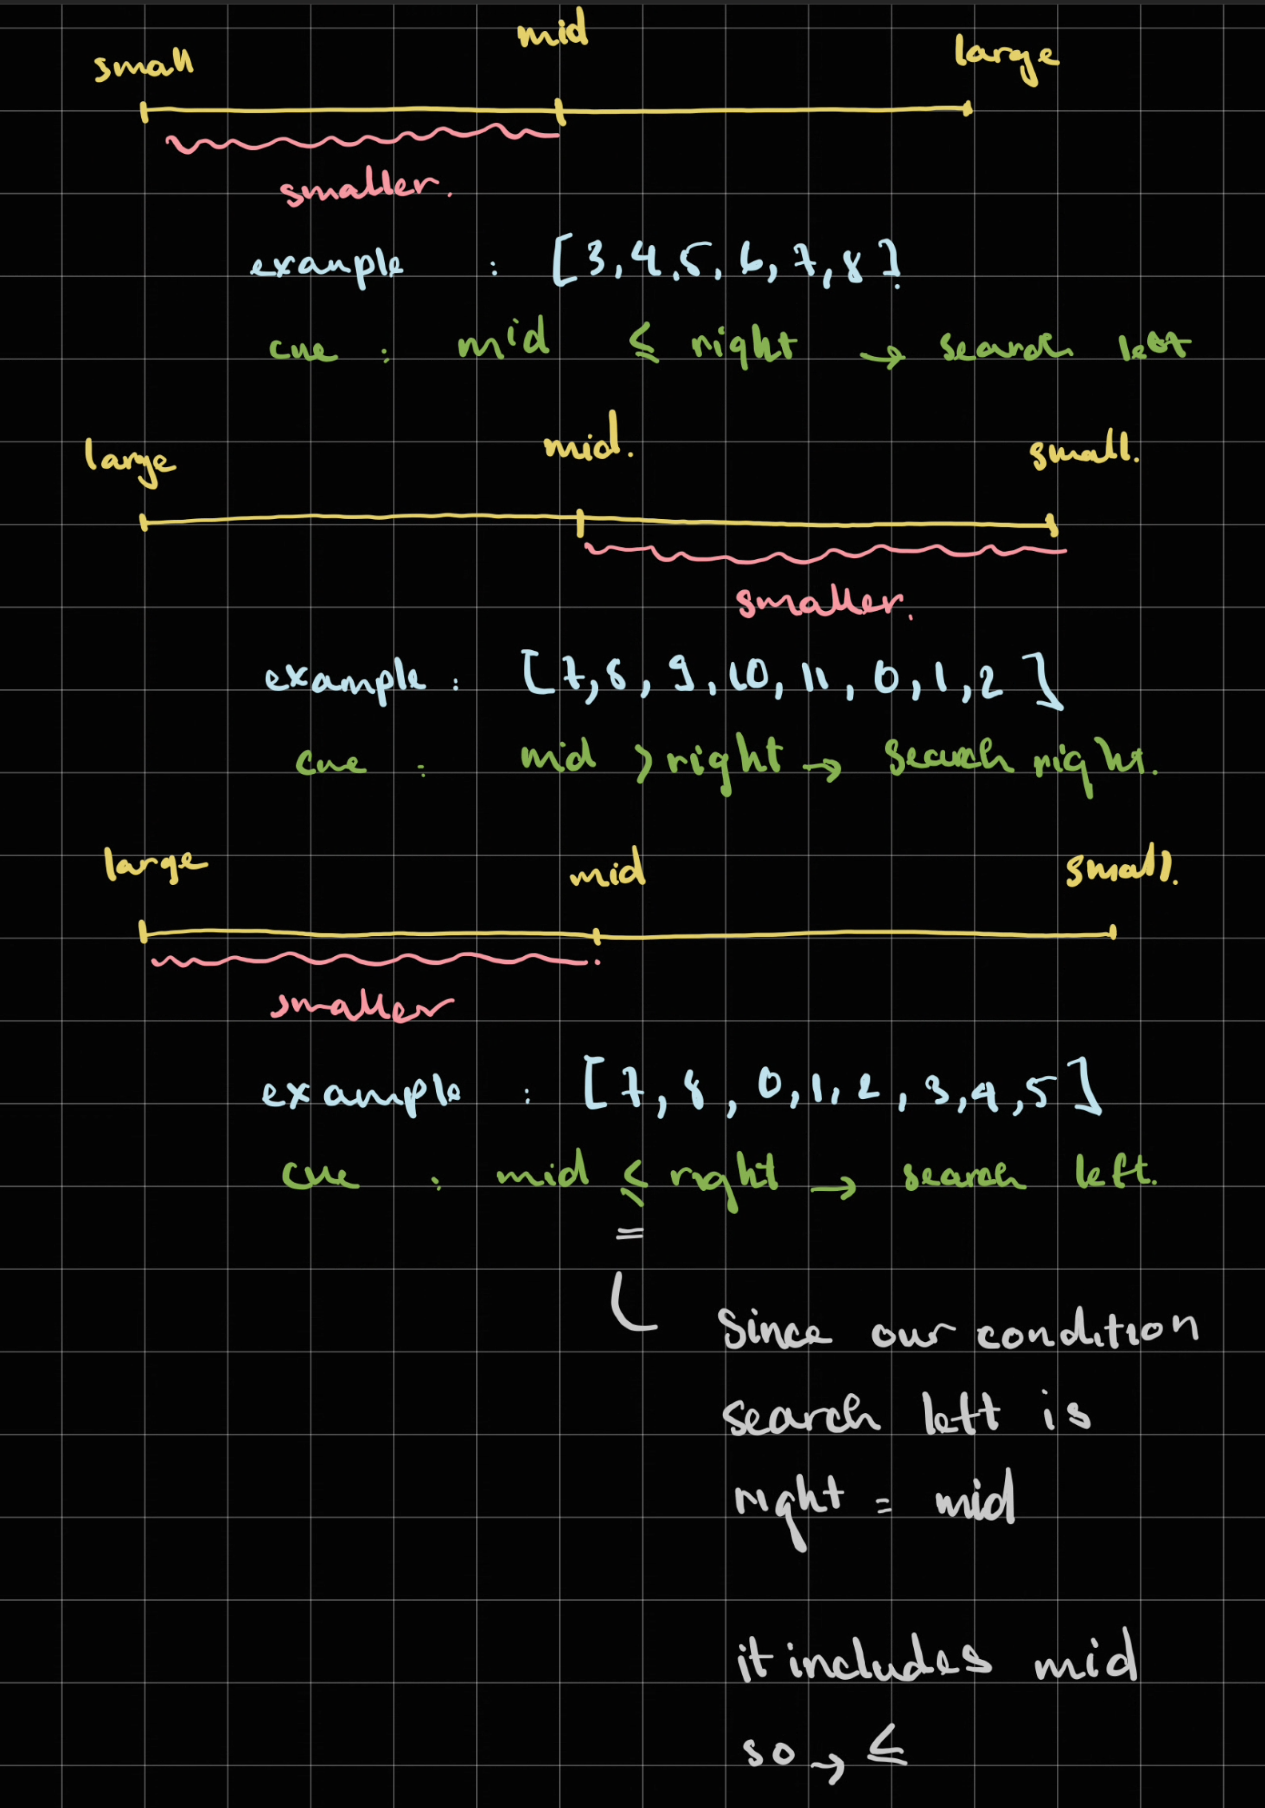 small mid large
smaller.
example : [3,4,5,6,7,8]
cue : mid ≤ right → search left
large mid. small.
smaller.
example : [7,8,9,10,11,0,1,2]
cue : mid > right → search right.
large mid small.
smaller
example : [7,8,0,1,2,3,4,5]
cue : mid ≤ right → search left.
=
Since our condition
search left is
right = mid
it includes mid
so → ≤